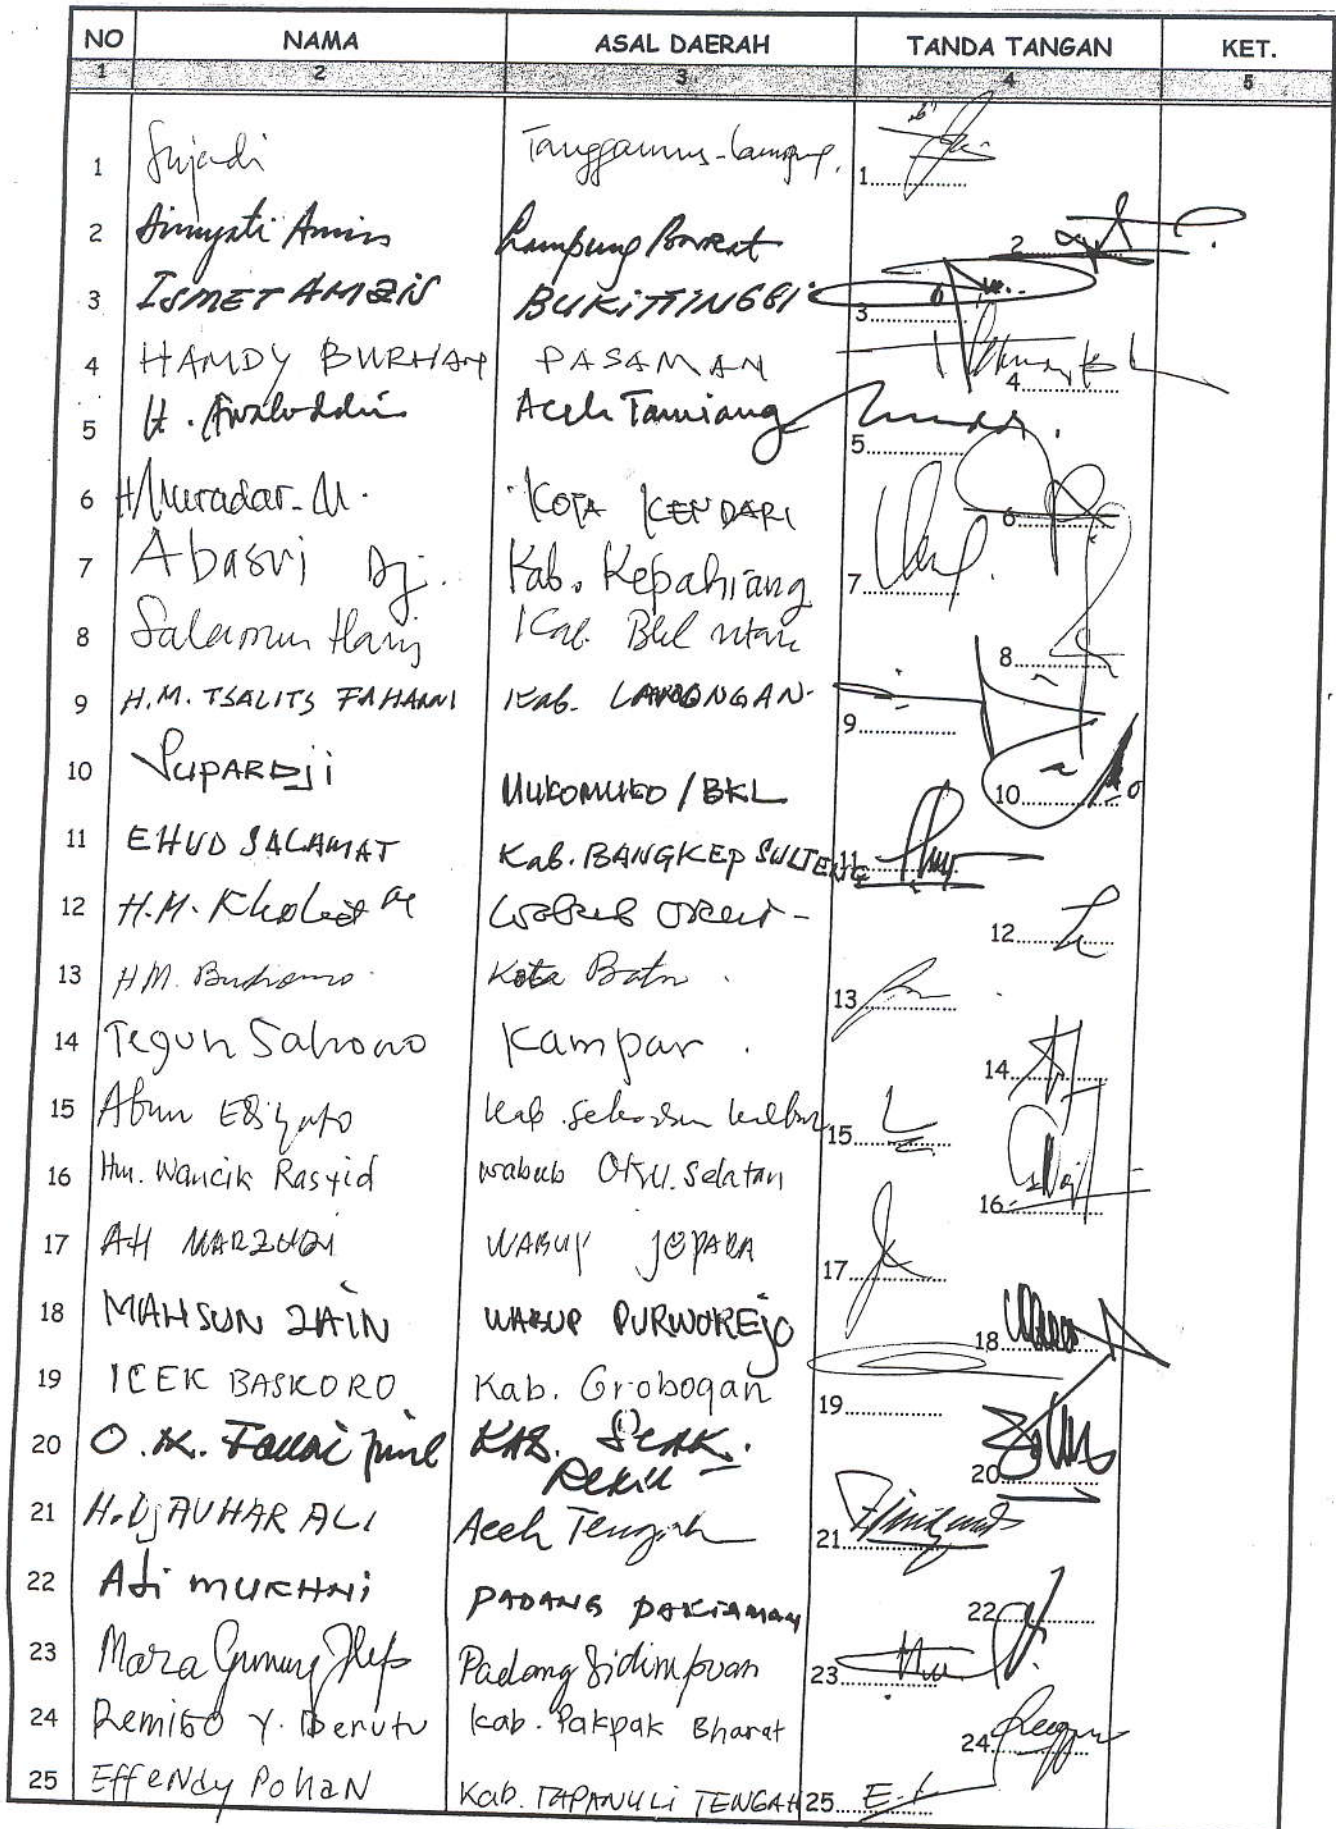 NO NAMA ASAL DAERAH TANDA TANGAN KET.
1 2 3 4 5
1 Sujadi Tanggamus-Lampung. 1
2 Dimyati Amin Lampung Barat 2
3 ISMET AMZIS BUKITTINGGI 3
4 HAMDY BURHAN PASAMAN 4
5 H. Awaluddin Aceh Tamiang 5
6 H Muradar. M. KOTA KENDARI 6
7 Abasri Dj. Kab. Kepahiang 7
8 Salamun Haris Kab. Bkl utara 8
9 H.M. TSALITS FAHAMI Kab. LAMONGAN 9
10 SUPARDji MUKOMUKO / BKL 10
11 EHUD SALAMAT Kab. BANGKEP SULTENG 11
12 H.M. 12
13 HM. Budiono Kota Batu 13
14 Teguh Sahono Kampar 14
15 Abun Ediyato Kab. Sekadau kalbar 15
16 Hm. Wancik Rasyid wabub OKU. Selatan 16
17 AH MARZUQI WABUP JEPARA 17
18 MAHSUN ZAIN WABUP PURWOREjO 18
19 ICEK BASKORO Kab. Grobogan 19
20 O.K. Fauzi Jamil KAB. SIAK. 20
21 H. Dj AUHAR ALI Aceh Tengah 21
22 Ali MUKHNi PADANG PARIAMAN 22
23 Mara Gunung Padang Sidimpuan 23
24 Remigo Y. Berutu Kab. Pakpak Bharat 24
25 EffeNdy PoHaN Kab. TAPANULi TENGAH 25